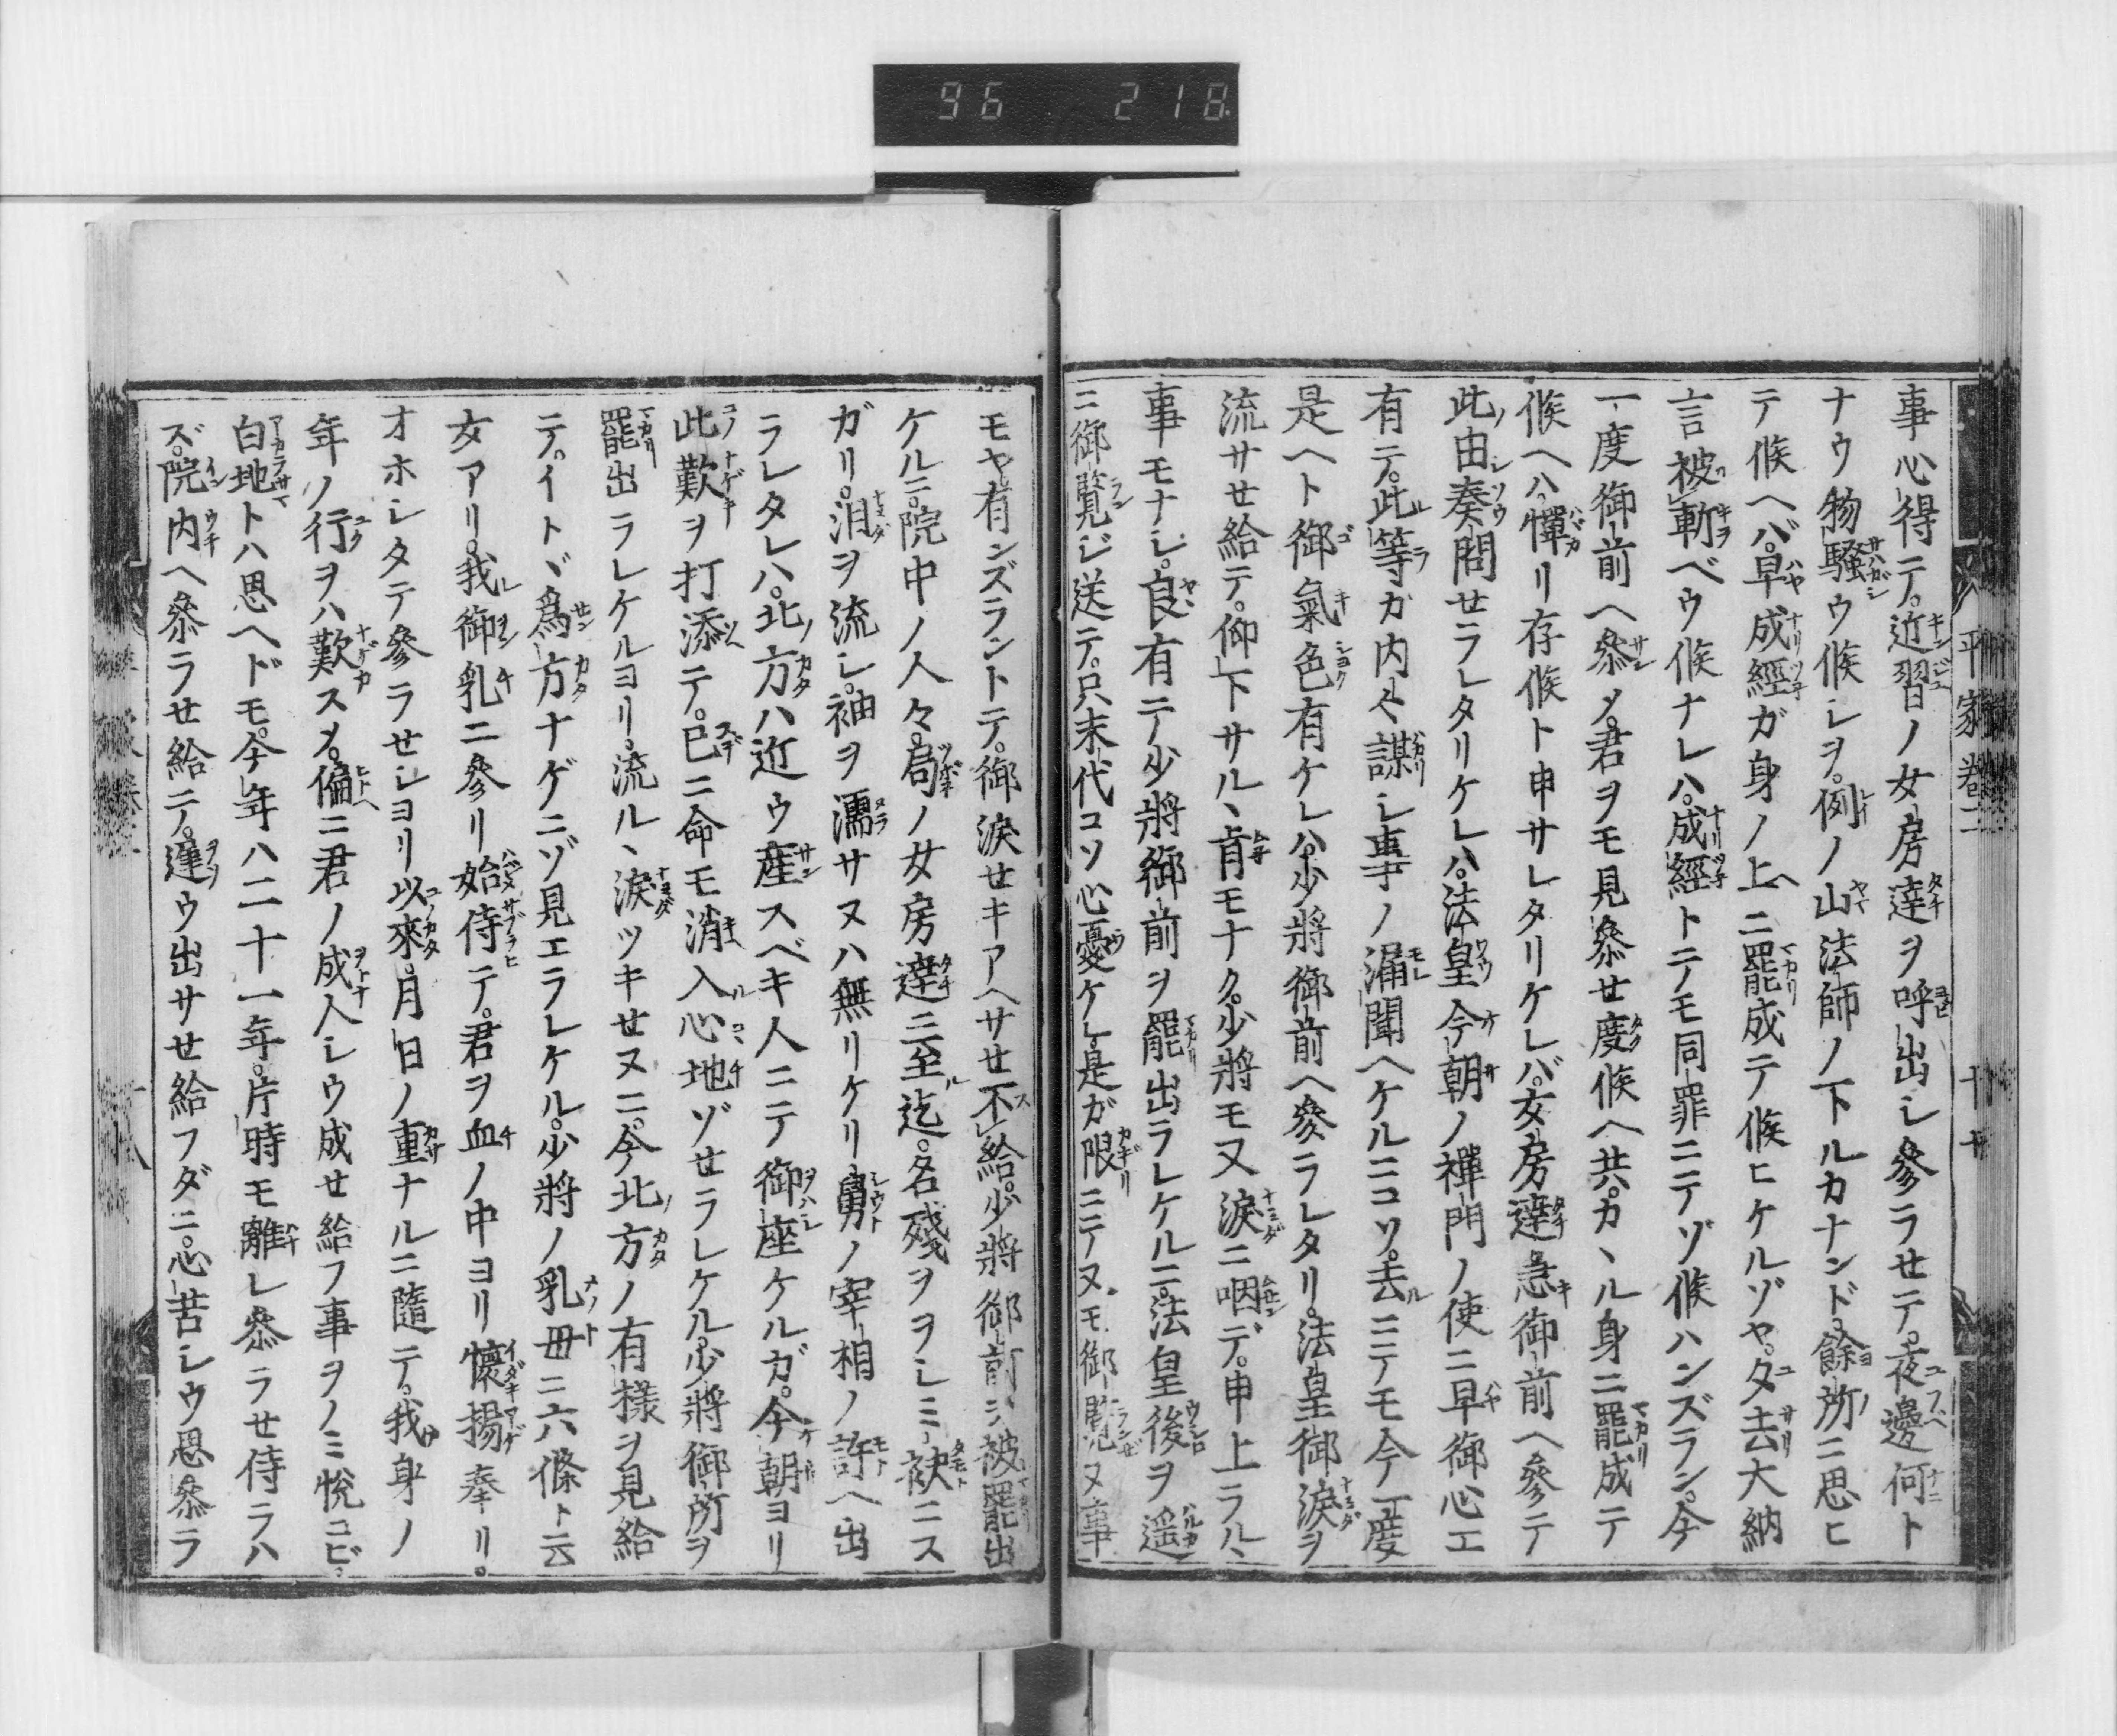 96 218
平家巻二
事心得テ。近習ノ女房達ヲ呼出シ參ラせテ。夜邊何ト
ナウ物騒ウ候シヲ。例ノ山法師ノ下ルカナンド。餘所ニ思ヒ
テ候ヘバ。早成經ガ身ノ上ニ罷成テ候ヒケルゾヤ。夕去大納
言被斬ベウ候ナレハ。成經トニテモ同罪ニテゾ候ハンズラン。今
一度御前ヘ參メ。君ヲモ見參せ度候ヘ共。カヽル身ニ罷成テ
候ヘハ。憚リ存候ト申サレタリケレバ。女房達急御前ヘ參テ
此由奏問せラレタリケレハ。法皇今朝ノ禪門ノ使ニ早御心エ
有ニテ。此等ガ内々謀シ事ノ漏聞ヘケルニコソ。去ニテモ今一度
是ヘト御氣色有ケレハ。少將御前ヘ參ラレタリ。法皇御淚ヲ
流サせ給テ。仰下サルヽ肯モナク。少將モ又淚ニ咽デ。申上ラルヽ
事モナシ。良有テ少將御前ヲ罷出ラレケルニ。法皇後ヲ遥
ニ御覧ジ送テ。只末代コソ心憂ケレ。是ガ限ニテヌモ御覧ヌ事
モヤ有ンズラントテ。御淚せキアヘサせ不給。少將御前ヲ被罷出
ケルニ。院中ノ人々。局ノ女房達ニ至迄。名殘ヲヲシミ袂ニス
ガリ。泪ヲ流シ。袖ヲ濡サヌハ無リケリ。舅ノ宰相ノ許ヘ出
ラレタレハ。北方ハ近ウ産スベキ人ニテ御座ケルガ。今朝ヨリ
此歎ヲ打添テ。已ニ命モ消入心地ゾせラレケル。少將御所ヲ
罷出ラレケルヨリ。流ルヽ淚ツキせヌニ。今北方ノ有樣ヲ見給
テ。イトヾ爲方ナゲニゾ見エラレケル。少將ノ乳母ニ六條ト云
女アリ。我御乳ニ參リ始侍テ。君ヲ血ノ中ヨリ懷揚奉リ。
オホシタテ參ラせシヨリ以來。月日ノ重ナルニ隨テ。我身ノ
年ノ行ヲハ歎スメ。偏ニ君ノ成人シウ成せ給フ事ヲノミ悅コビ。
白地トハ思ヘドモ。今年ハ二十一年。片時モ離レ參ラせ侍ラハ
ズ。院内ヘ參ラせ給テ。遲ウ出サせ給フダニ。心苦シウ思參ラ